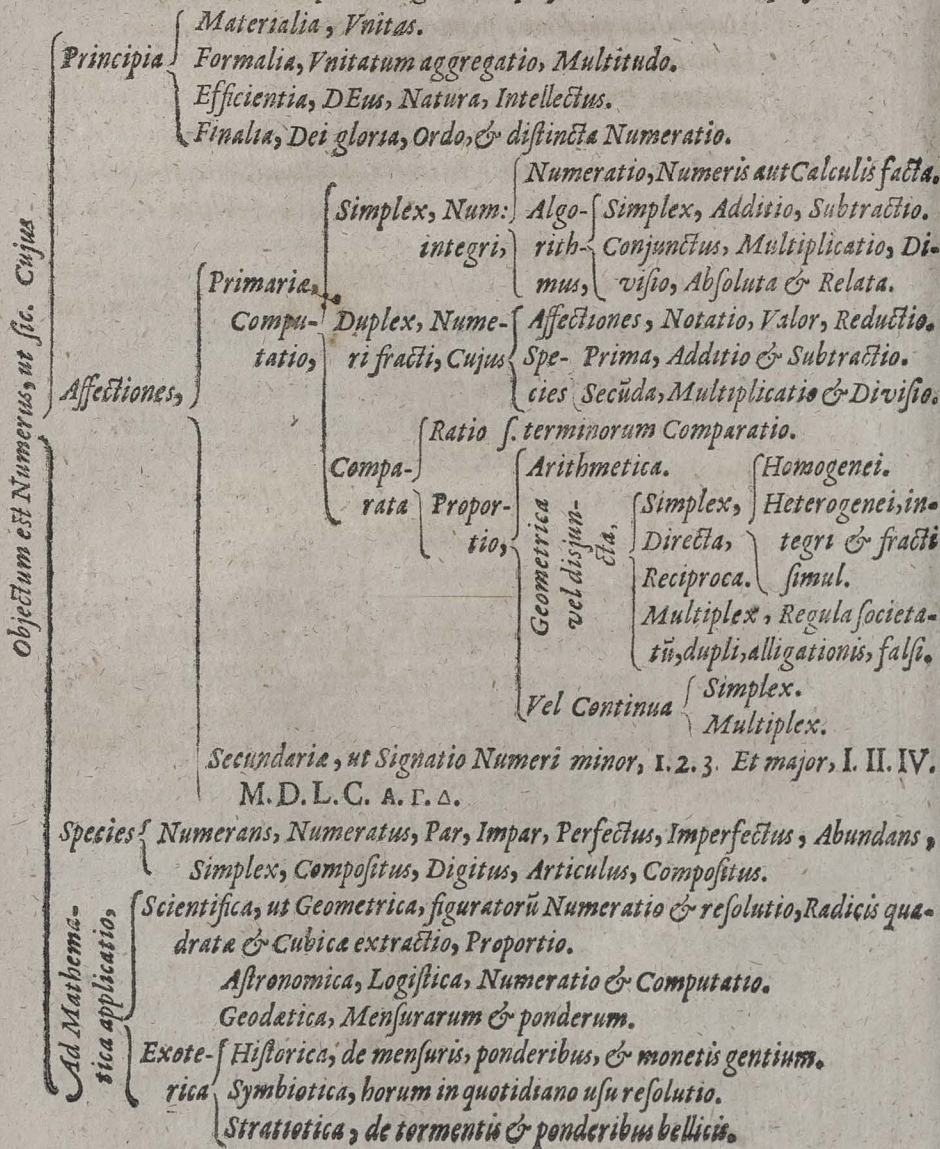 Objectum est Numerus, ut sic. Cujus
Principia
Materialia, Vnitas.
Formalia, Vnitatum aggregatio, Multitudo.
Efficientia, DEus, Natura, Intellectus.
Finalia, Dei gloria, Ordo, & distincta Numeratio.
Affectiones,
Primariæ,
Compu-
tatio,
Simplex, Num:
integri,
Numeratio, Numeris aut Calculis facta.
Algo-
rith-
mus,
Simplex, Additio, Subtractio.
Conjunctus, Multiplicatio, Di-
visio, Absoluta & Relata.
Duplex, Nume-
ri fracti, Cujus
Affectiones, Notatio, Valor, Reductio.
Spe-
cies
Prima, Additio & Subtractio.
Secũda, Multiplicatio & Divisio.
Compa-
rata
Ratio s. terminorum Comparatio.
Propor-
tio,
Arithmetica.
Geometrica
vel disjun-
cta,
Simplex,
Directa,
Reciproca.
Homogenei.
Heterogenei, in-
tegri & fracti
simul.
Multiplex, Regula societa-
tũ, dupli, alligationis, falsi.
Vel Continua
Simplex.
Multiplex.
Secundariæ, ut Signatio Numeri minor, 1.2.3. Et major, I. II. IV.
M. D. L. C. Α. Γ. Δ.
Species
Numerans, Numeratus, Par, Impar, Perfectus, Imperfectus, Abundans,
Simplex, Compositus, Digitus, Articulus, Compositus.
Ad Mathema-
tica applicatio,
Scientifica, ut Geometrica, figuratorũ Numeratio & resolutio, Radicis qua-
dratæ & Cubicæ extractio, Proportio.
Astronomica, Logistica, Numeratio & Computatio.
Geodætica, Mensurarum & ponderum.
Exote-
rica
Historica, de mensuris, ponderibus, & monetis gentium.
Symbiotica, horum in quotidiano usu resolutio.
Stratiotica, de tormentis & ponderibus bellicis.